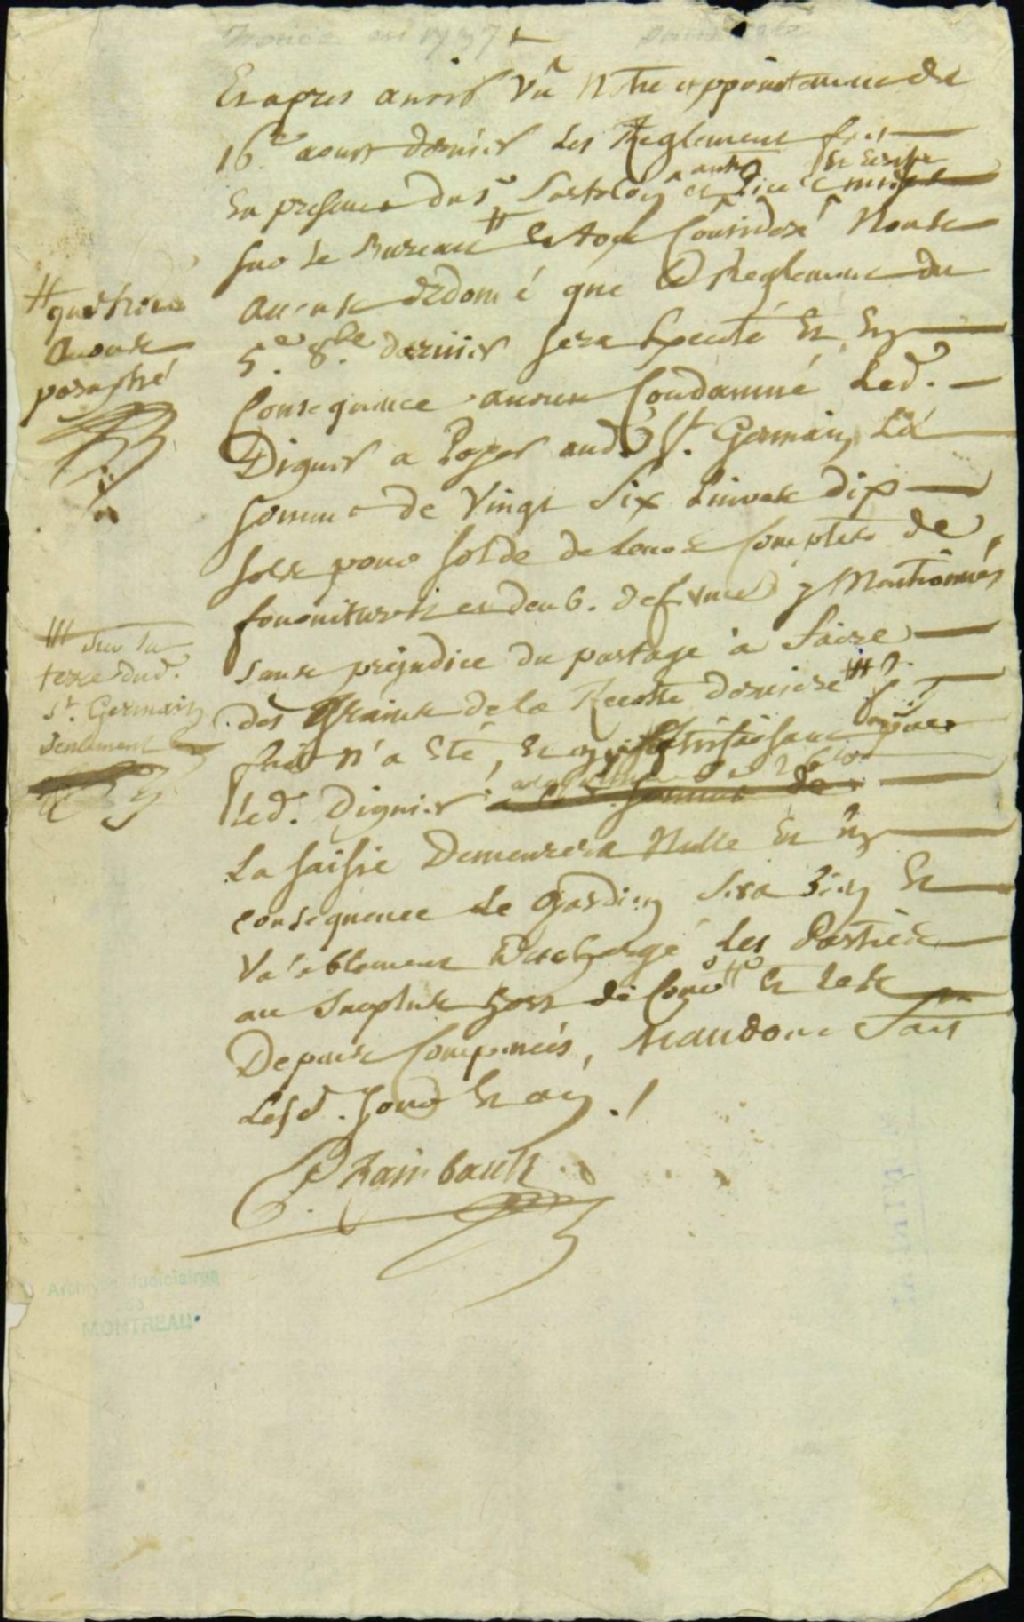 Et apres avoir Vû Notre appointement de
16e aoust dernier Les Reglement fait
En presence du Sr et autre piece
sur Le Bureau # Et tout Consideré Nous
avons ordonné que Le Reglement du
5e 8bre dernier sera Executé Et En
Consequence avons Condamné Led.
Digner a Payer aud. St. Germain La
somme de Vingt Six Livres dix
sols pour solde de Leurs Comptes de
fournitures y Mentionnés
sans prejudice du partage a faire
des Grains de La Recolte derniere ###
fait n'a Eté, Et En satisfaisant
led. Digner
La saisie Demeurera Nulle Et En
consequence Le Gardien sera bien Et
Valablement Dechargé Les Parties
au surplus hors de Cour Et Les
Depens Compensés, Mandons
Lesd. Jour Et an ./
Raimbault
# que Nous
avons
paraphé
### sur La
terre dud.
St. Germain
seulement
Archives Judiciaires
MONTREAL